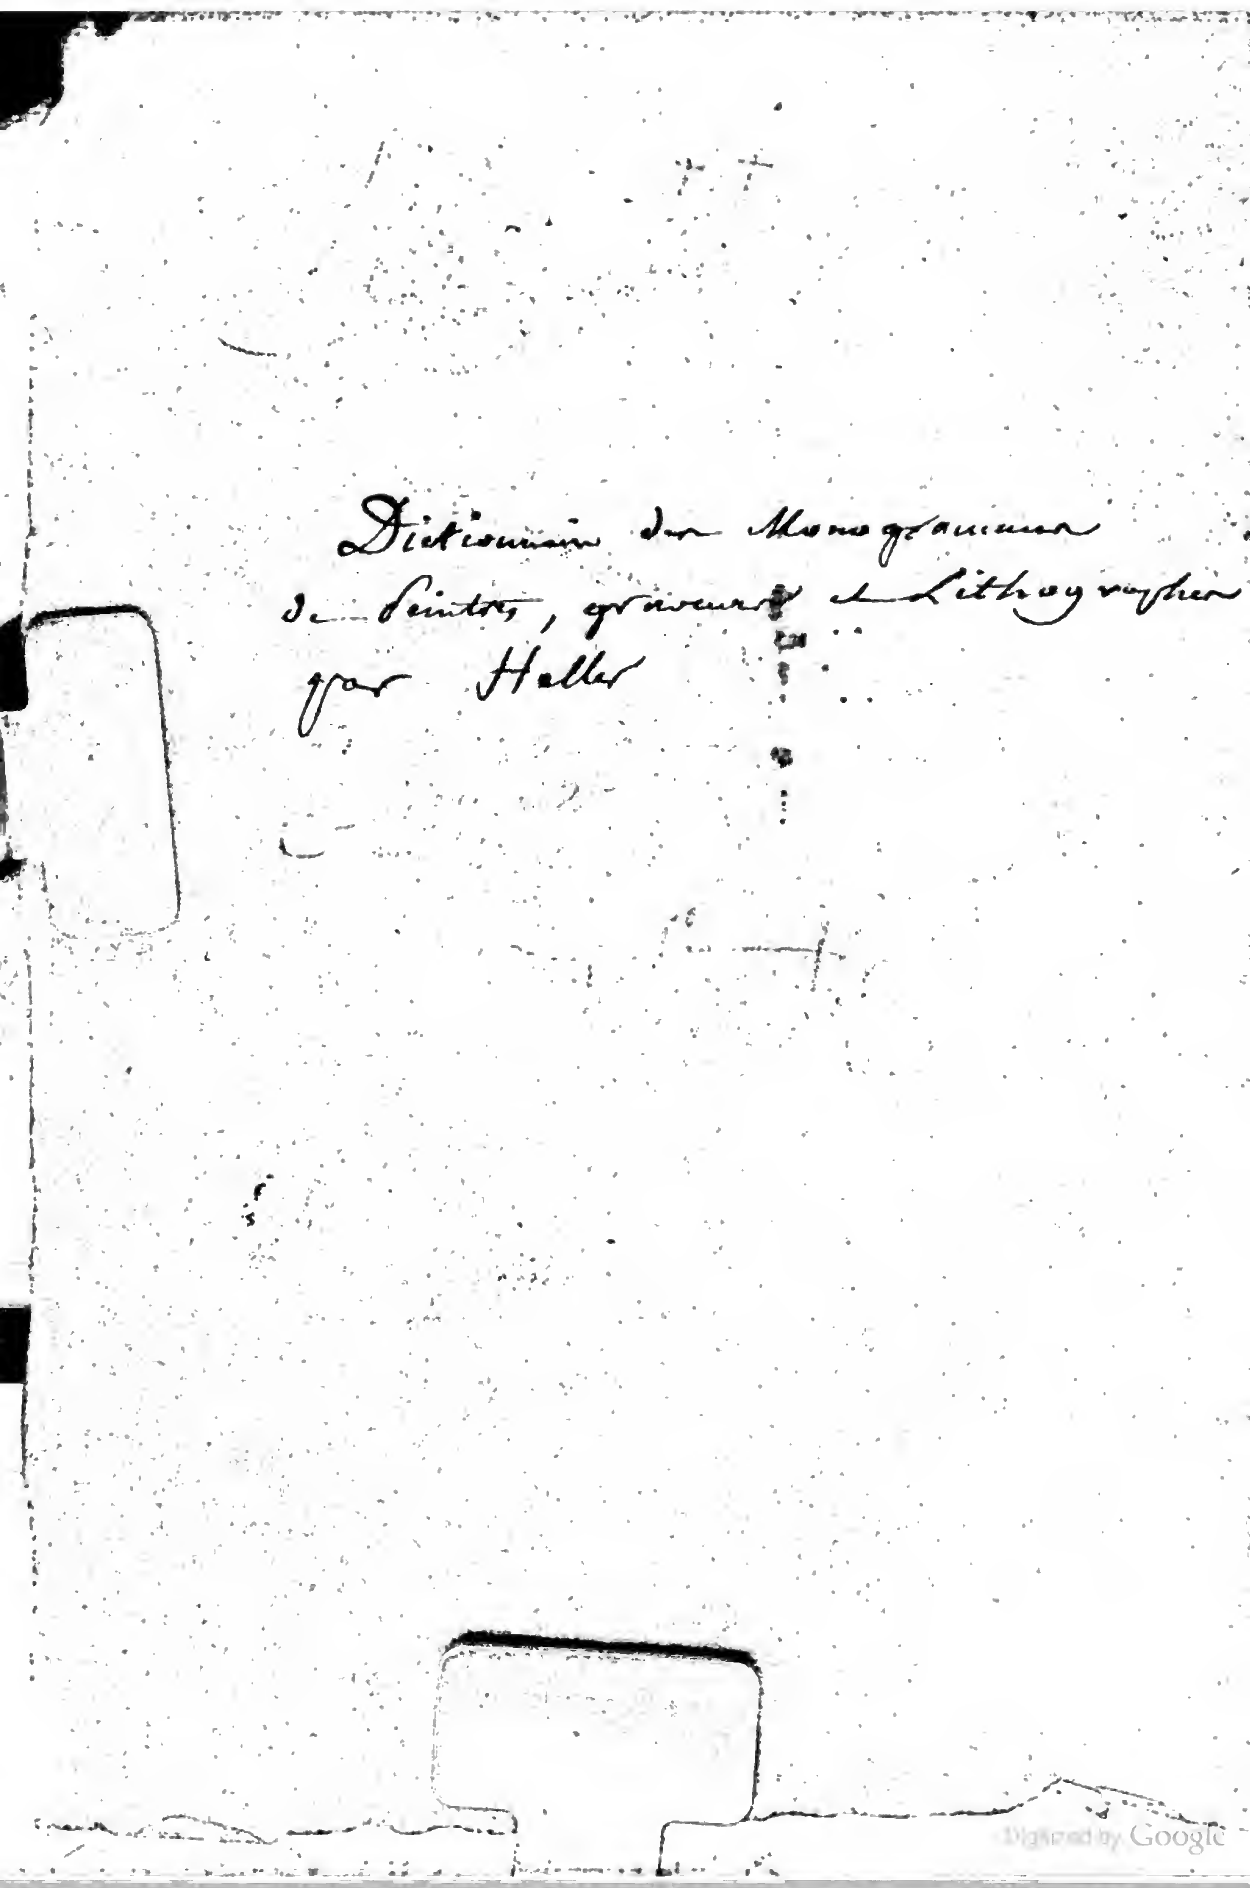 Dictionnaire des Monogrammes
de Peintres, graveurs et Lithographes
par Heller
Digitized by Google